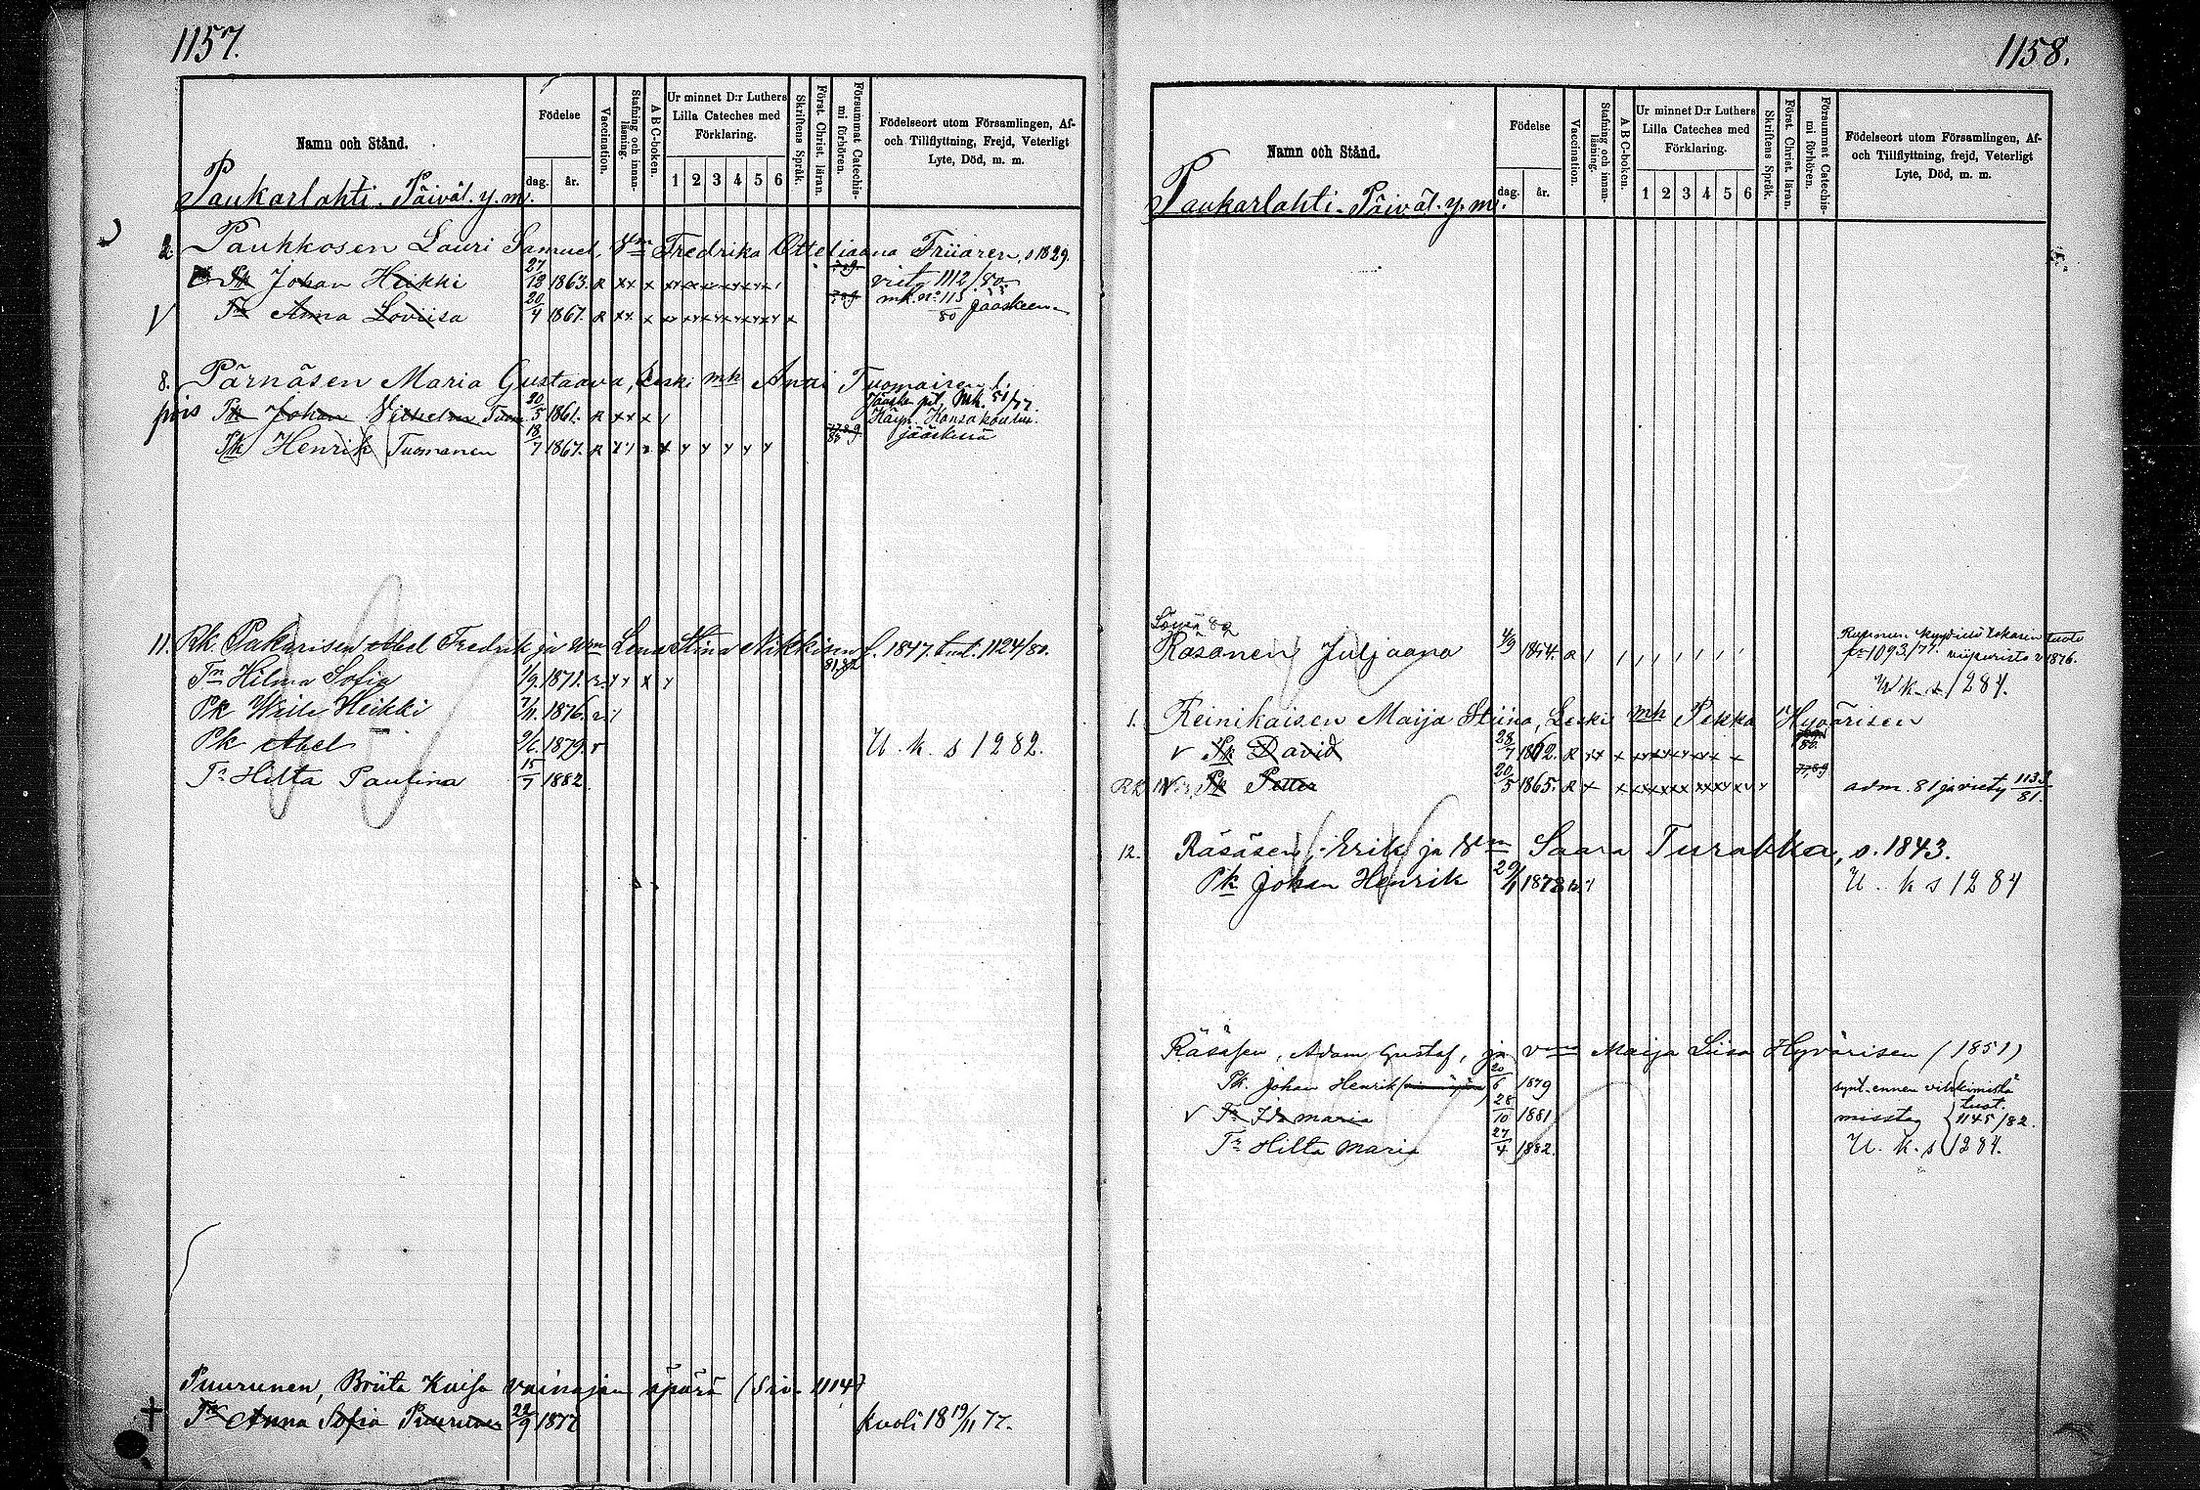 1157.
Namn och Stånd.
Födelse
dag. år.
Vaccination.
Stafning och innanläsning.
A B C-boken.
Ur minnet D:r Luthers Lilla Cateches med Förklaring.
1 2 3 4 5 6
Skriftens Språk.
Först. Christ. läran.
Försummat Catechismi förhören.
Födelseort utom Församlingen, Af- och Tillflyttning, Frejd, Veterligt Lyte, Död, m. m.
Paukarlahti. Päiväl. y. m.
2 Paukkosen Lauri Samuel, Vm Fredrika Otteliaana Friiaren, s 1829.
Pk Johan Heikki 27/12 1863. R viety 1112/80
Tr Anna Loviisa 20/4 1867. R mk. No 113/80 Jääskeen
8. Pärnäsen Maria Gustaava, Leski mk Anti Tuomaisen l.
pois Pk Johan Vilhelm Tuom 20/5 1861. R Jääsken pit. Mk. 51/77.
Pk Henrik Tuomanen 18/7 1867. R Käyp. Kansakoulua jääskessä
11. Rk Pakarisen Abel Fredrik ja Wm Lena Stina Nikkisen l. 1847. tuot. 1124/80.
81,82
Tr Hilma Sofia 1/9 1871. r.
Pk Weile Heikki 7/11 1876. r.
Pk Abel 2/6 1879. r U. k. s 1282.
Tr Hilta Paulina 15/7 1882
Puurunen, Briita Kaisa vainajan äpärä (Siv. 1114)
Tr Anna Sofia Puurunen 22/9 1877 kuoli 18 19/11 77.
1158.
Namn och Stånd.
Födelse
dag. år.
Vaccination.
Stafning och innanläsning.
A B C-boken.
Ur minnet D:r Luthers Lilla Cateches med Förklaring.
1 2 3 4 5 6
Skriftens Språk.
Först. Christ. läran.
Försummat Catechismi förhören.
Födelseort utom Församlingen, Af- och Tillflyttning, frejd, Veterligt Lyte, Död, m. m.
Paukarlahti. Päiväl. y. m.
Räsänen Juljaana 4/9 1854. R 1093/77. viipurista v 1876.
U k. s. 1284.
1. Reinikaisen Maija Stiina, Leski mk Pekka Hyvärisen
Pk David 28/7 1862. R
Pk Petter 20/5 1865. R adm. 81 ja viety 1133/81.
12. Räsäsen, Erik ja Vm Saara Turakka, s. 1843.
Pk Johan Henrik 29/1 1878 U. k s 1284
Räsäsen, Adam Gustaf, ja vm Maija Liisa Hyvärisen (1851)
Pk. Johan Henrik 20/6 1879 synt. ennen vihkimistä
Tr Ida maria 28/10 1881 misstag tuot. 1145/82.
Tr Hilta Maria 27/4 1882. U. k. s 1284.